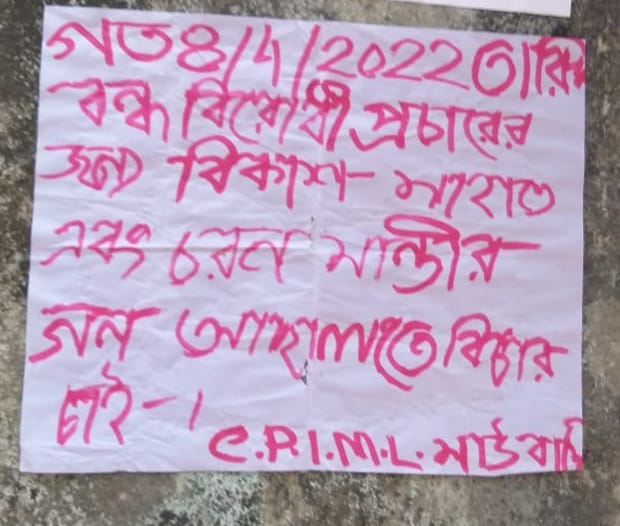 গত 8/4/2022 তারিখ
বন্ধ বিরোধী প্রচারের
জন্য বিকাশ মাহাত
এবং চরন মান্ডীর
গন আদালতে বিচার
চাই -।
C.P.I.M.L. মাউবাদি